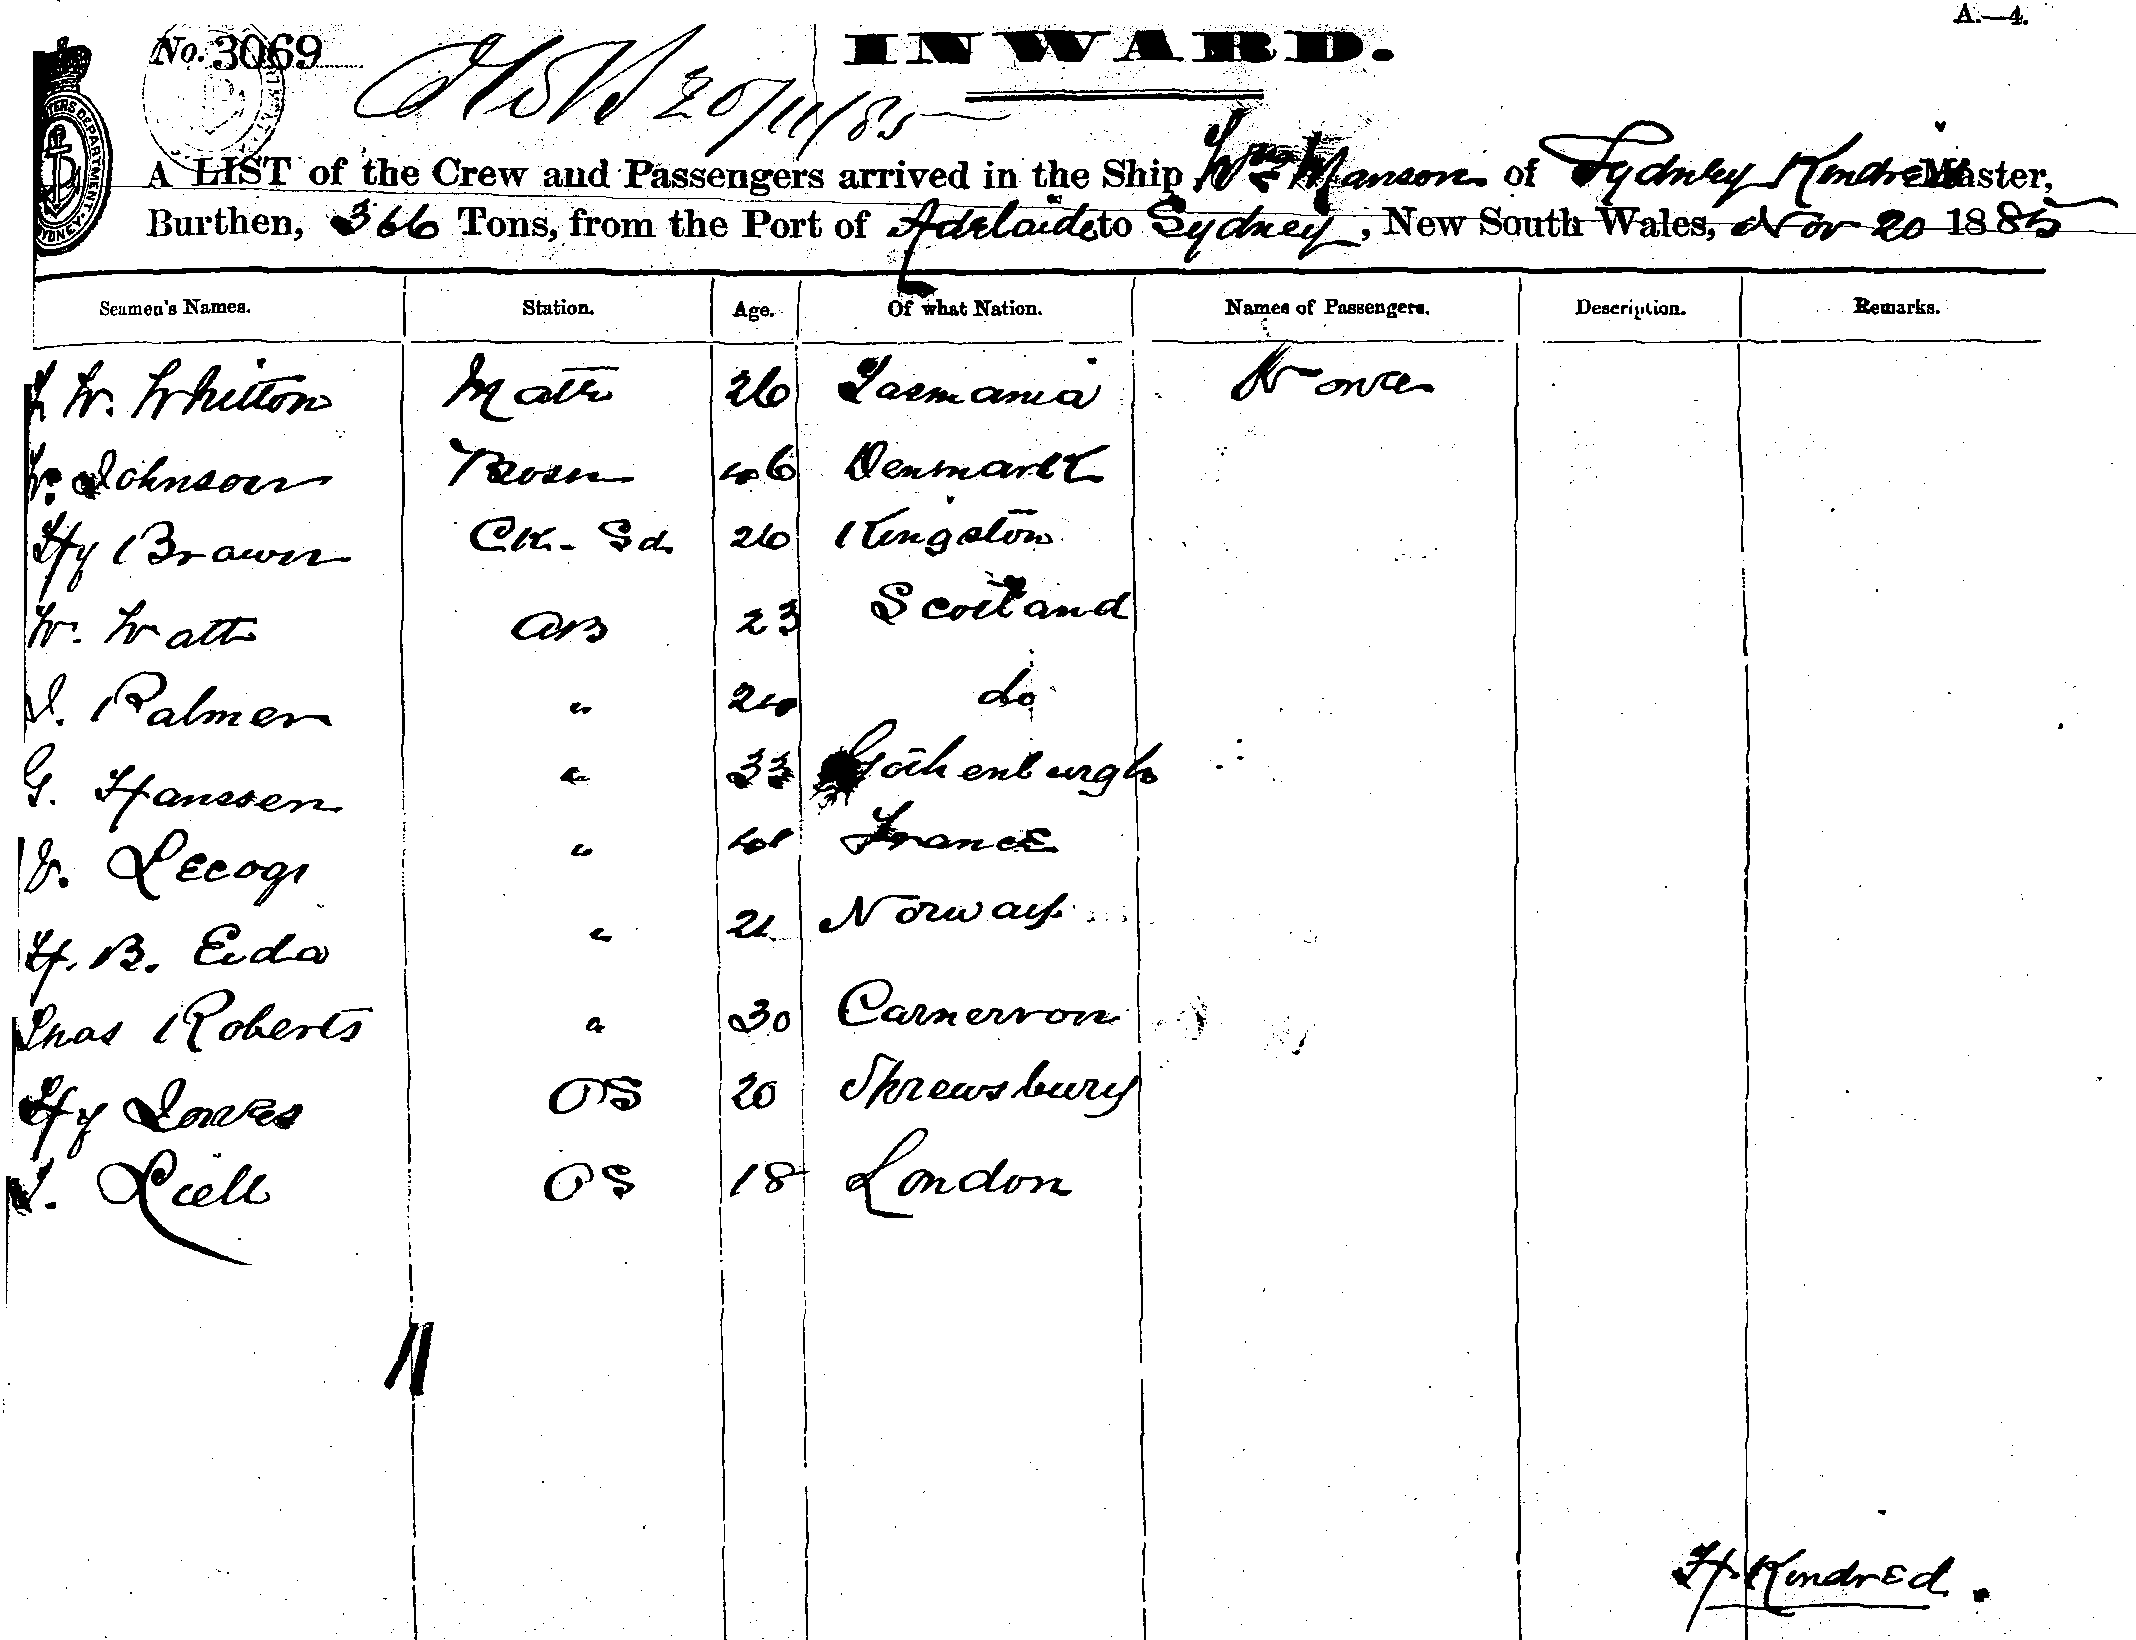 A.—4.
No. 3069
INWARD.
20/11/85
A LIST of the Crew and Passengers arrived in the Ship Wm Manson of Sydney Kindred Master,
Burthen, 366 Tons, from the Port of Adelaide to Sydney, New South Wales, Nov 20 1885
Seamen's Names. Station. Age. Of what Nation. Names of Passengers. Description. Remarks.
W. Whitton Mate 26 Tasmania None
Johnson Bosn 46 Denmark
Hy Brown Ck. Sd. 26 Kingston
W. Watt AB 23 Scotland
Palmer " 24 do
G. Hanssen " 33 Gothenburgh
Lecoq " 41 France
H. B. Eida " 21 Norway
Thos Roberts " 30 Carnervon
Hy Jones OS 20 Shrewsbury
Liell OS 18 London
11
H. Kindred.